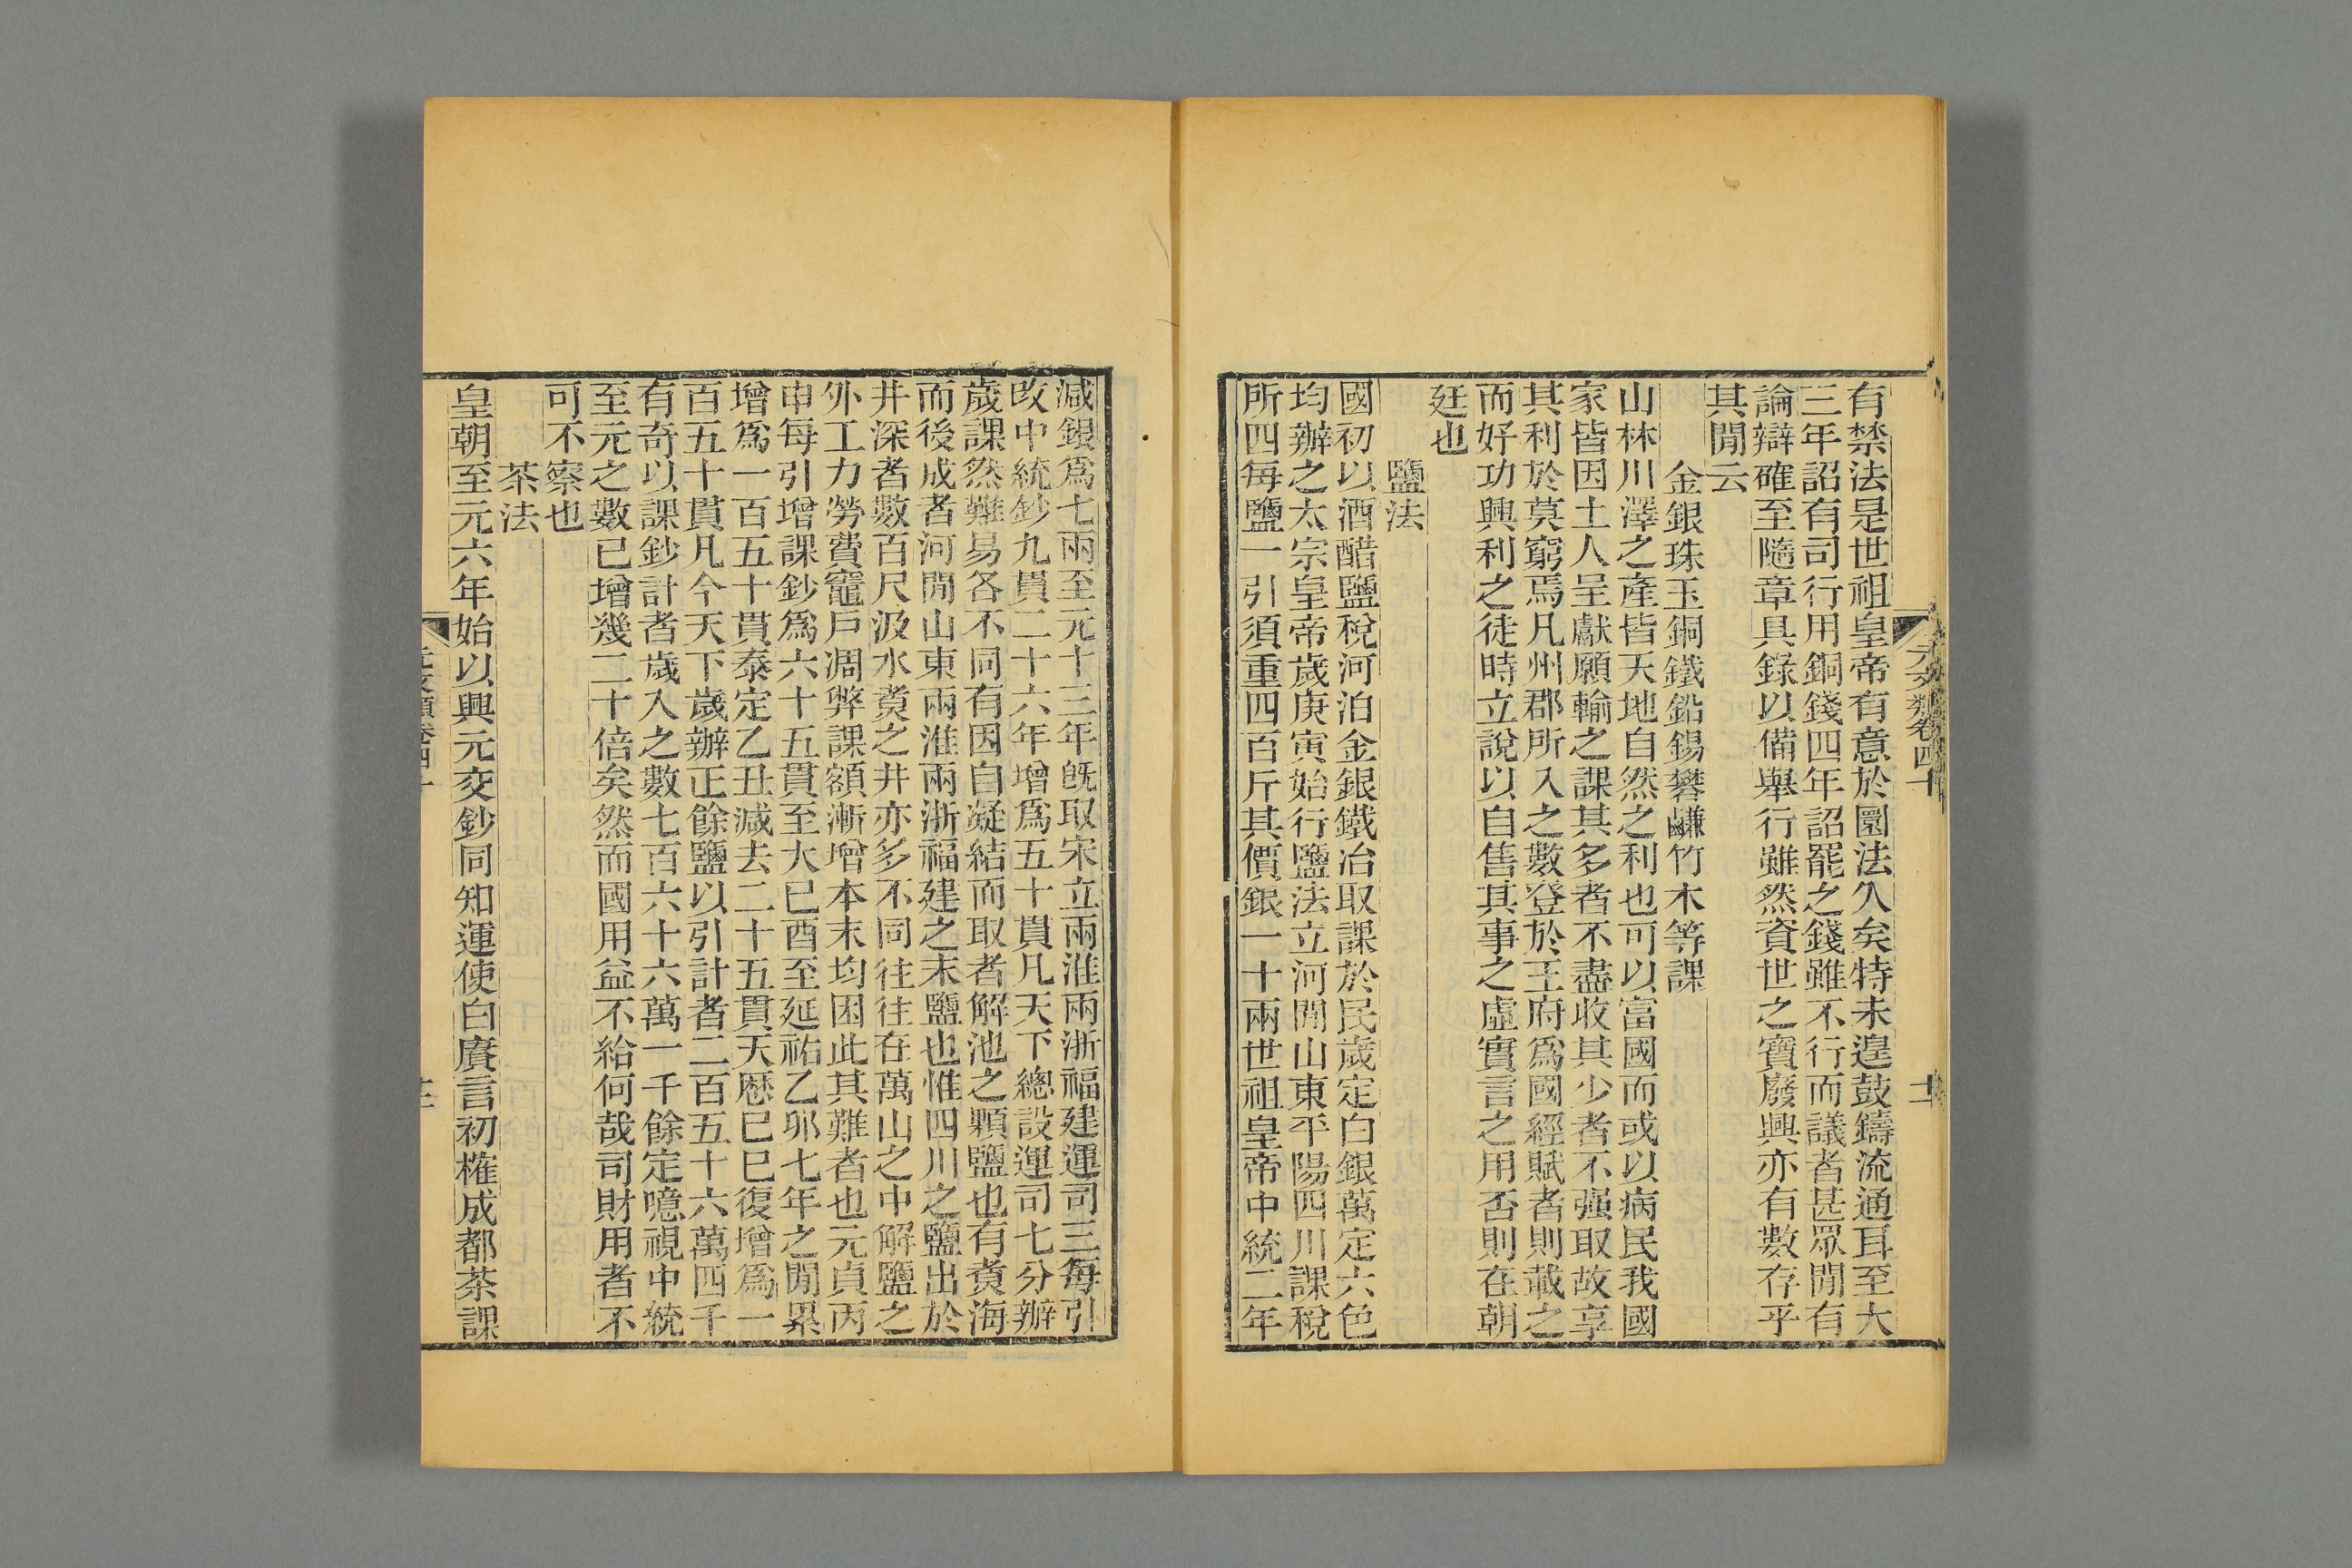 元文類卷四十
十一
有禁法是世祖皇帝有意於圜法久矣特未遑鼓鑄流通耳至大
三年詔有司行用銅錢四年詔罷之錢雖不行而議者甚眾閒有
論辯確至隨章具錄以備舉行雖然資世之寶廢興亦有數存乎
其閒云
金銀珠玉銅鐵鉛錫礬鹻竹木等課
山林川澤之產皆天地自然之利也可以富國而或以病民我國
家皆因土人呈獻願輸之課其多者不盡收其少者不强取故享
其利於莫窮焉凡州郡所入之數登於王府爲國經賦者則載之
而好功興利之徒時立說以自售其事之虛實言之用否則在朝
廷也
鹽法
國初以酒醋鹽稅河泊金銀鐵冶取課於民歲定白銀萬定六色
均辦之太宗皇帝歲庚寅始行鹽法立河閒山東平陽四川課稅
所四每鹽一引須重四百斤其價銀一十兩世祖皇帝中統二年
減銀爲七兩至元十三年旣取宋立兩淮兩浙福建運司三每引
改中統鈔九貫二十六年增爲五十貫凡天下總設運司七分辦
歲課然難易各不同有因自凝結而取者解池之顆鹽也有煑海
而後成者河閒山東兩淮兩浙福建之末鹽也惟四川之鹽出於
井深者數百尺汲水煑之井亦多不同往往在萬山之中解鹽之
外工力勞費竈戶凋弊課額漸增本末均困此其難者也元貞丙
申每引增課鈔爲六十五貫至大己酉至延祐乙卯七年之閒累
增爲一百五十貫泰定乙丑減去二十五貫天厯己巳復增爲一
百五十貫凡今天下歲辦正餘鹽以引計者二百五十六萬四千
有奇以課鈔計者歲入之數七百六十六萬一千餘定噫視中統
至元之數已增幾二十倍矣然而國用益不給何哉司財用者不
可不察也
茶法
皇朝至元六年始以興元交鈔同知運使白賡言初榷成都茶課